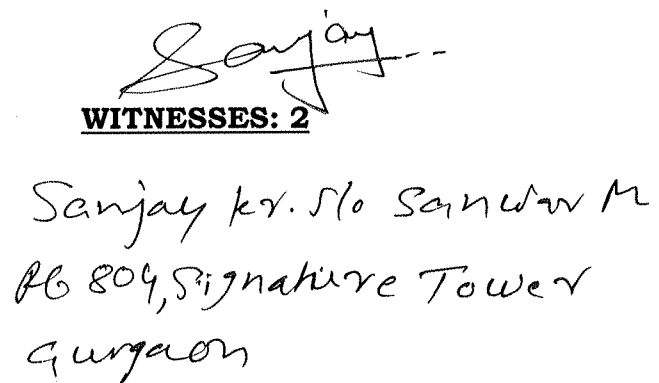 Sanjay
WITNESSES: 2
Sanjay kr. S/o Sanwar M
804, Signature Tower
Gurgaon